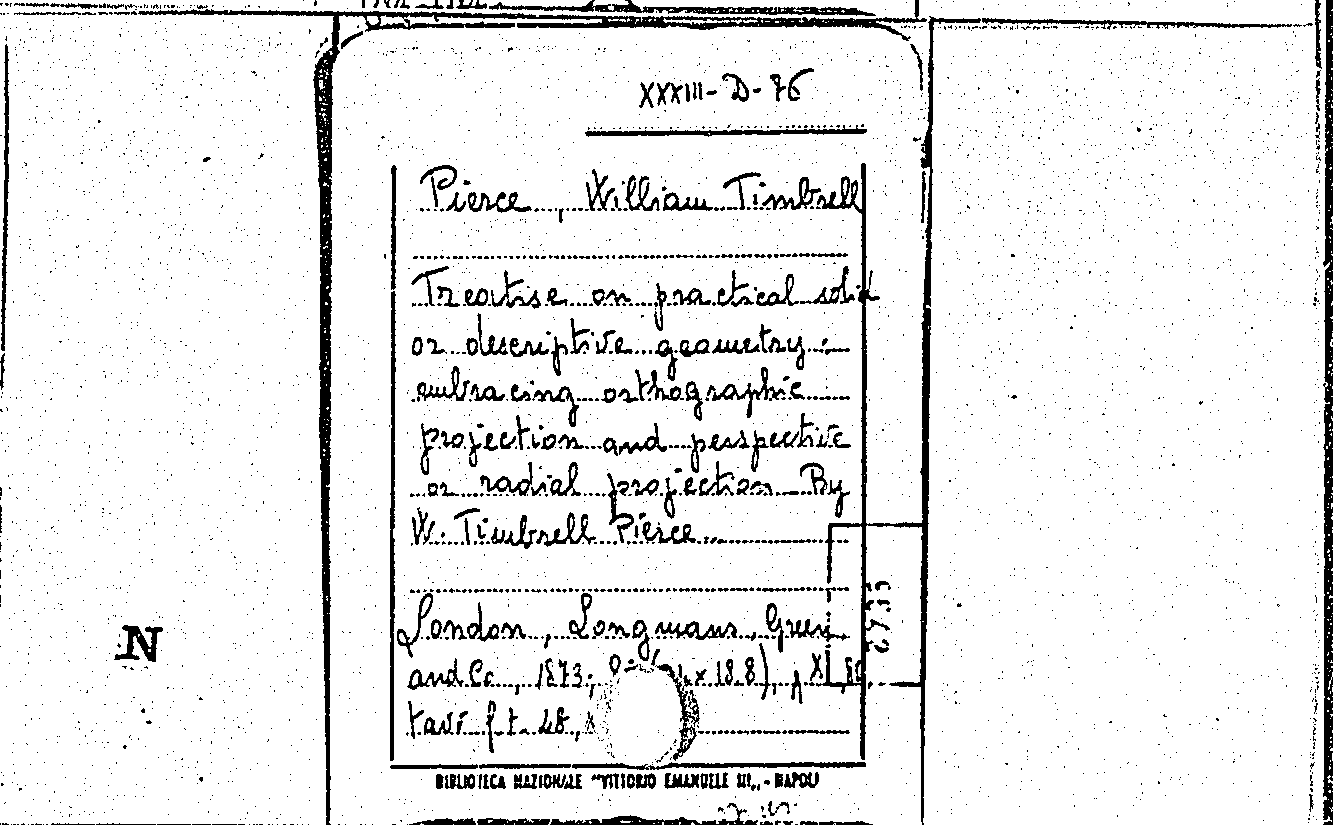 XXXIII-D-76
Pierce, William Timbrell
Treatise on practical solid
or descriptive geometry:
embracing orthographic
projection and perspective
or radial projection By
W. Timbrell Pierce..
London, Longmans, Green
and Co, 1873; 18.8), XI, 80
tavi f.t. 48,
N
BIBLIOTECA NAZIONALE "VITTORIO EMANUELE III,, - NAPOLI